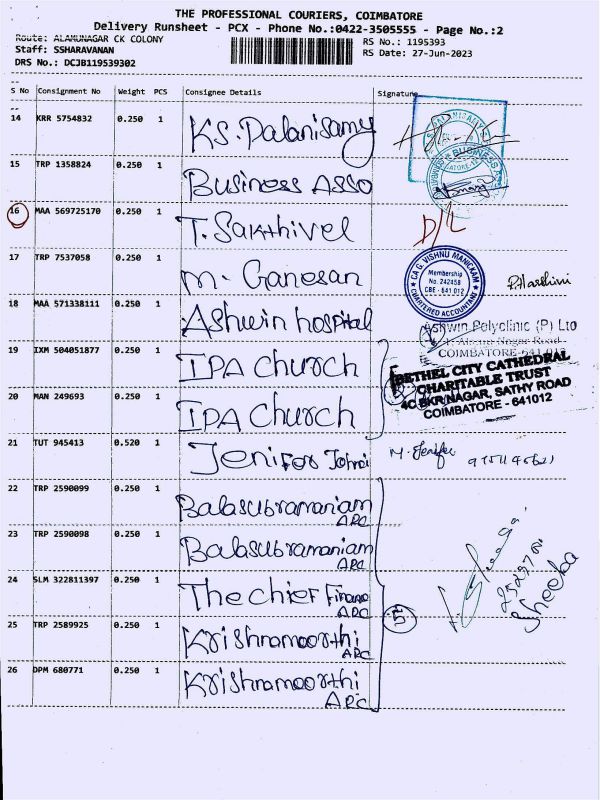 THE PROFESSIONAL COURIERS, COIMBATORE
Delivery Runsheet - PCX - Phone No.:0422-3505555 - Page No.:2
Route: ALAMUNAGAR CK COLONY
RS No.: 1195393
Staff: SSHARAVANAN
RS Date: 27-Jun-2023
DRS No.: DCJB119539302
S No Consignment No Weight PCS Consignee Details Signature
14 KRR 5754832 0.250 1 KS. Palanisamy
15 TRP 1358824 0.250 1 Business Asso
16 MAA 569725170 0.250 1 T. Sakthivel D/L
17 TRP 7537058 0.250 1 M. Ganesan
CA G. VISHNU MANICKAM
Membership
No. 242458
CBE - 641 012
CHARTERED ACCOUNTANT
P. Harshini
18 MAA 571338111 0.250 1 Ashwin hospital
Ashwin Polyclinic (P) Ltd
Nagar Road
COIMBATORE-641 012
19 IXM 504051877 0.250 1 IPA Church
BETHEL CITY CATHEDRAL
CHARITABLE TRUST
4C BKR NAGAR, SATHY ROAD
COIMBATORE - 641012
20 MAN 249693 0.250 1 IPA Church
21 TUT 945413 0.520 1 Jenifer M. Jenifer
22 TRP 2590099 0.250 1 Balasubramaniam
APC
23 TRP 2590098 0.250 1 Balasubramaniam
APC
24 SLM 322811397 0.250 1 The chief Finance
APC
5
Sheeba
25 TRP 2589925 0.250 1 Krishnamoorthi
APC
26 DPM 680771 0.250 1 Krishnamoorthi
APC